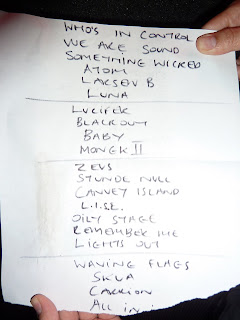 WHO'S IN CONTROL
WE ARE SOUND
SOMETHING WICKED
ATOM
LARSEN B
LUNA
LUCIFER
BLACKOUT
BABY
MONGK II
ZEUS
STUNDE NULL
CANVEY ISLAND
L.I.S.E.
OILY STAGE
REMEMBER ME
LIGHTS OUT
WAVING FLAGS
SKVA
CARRION
ALL IN